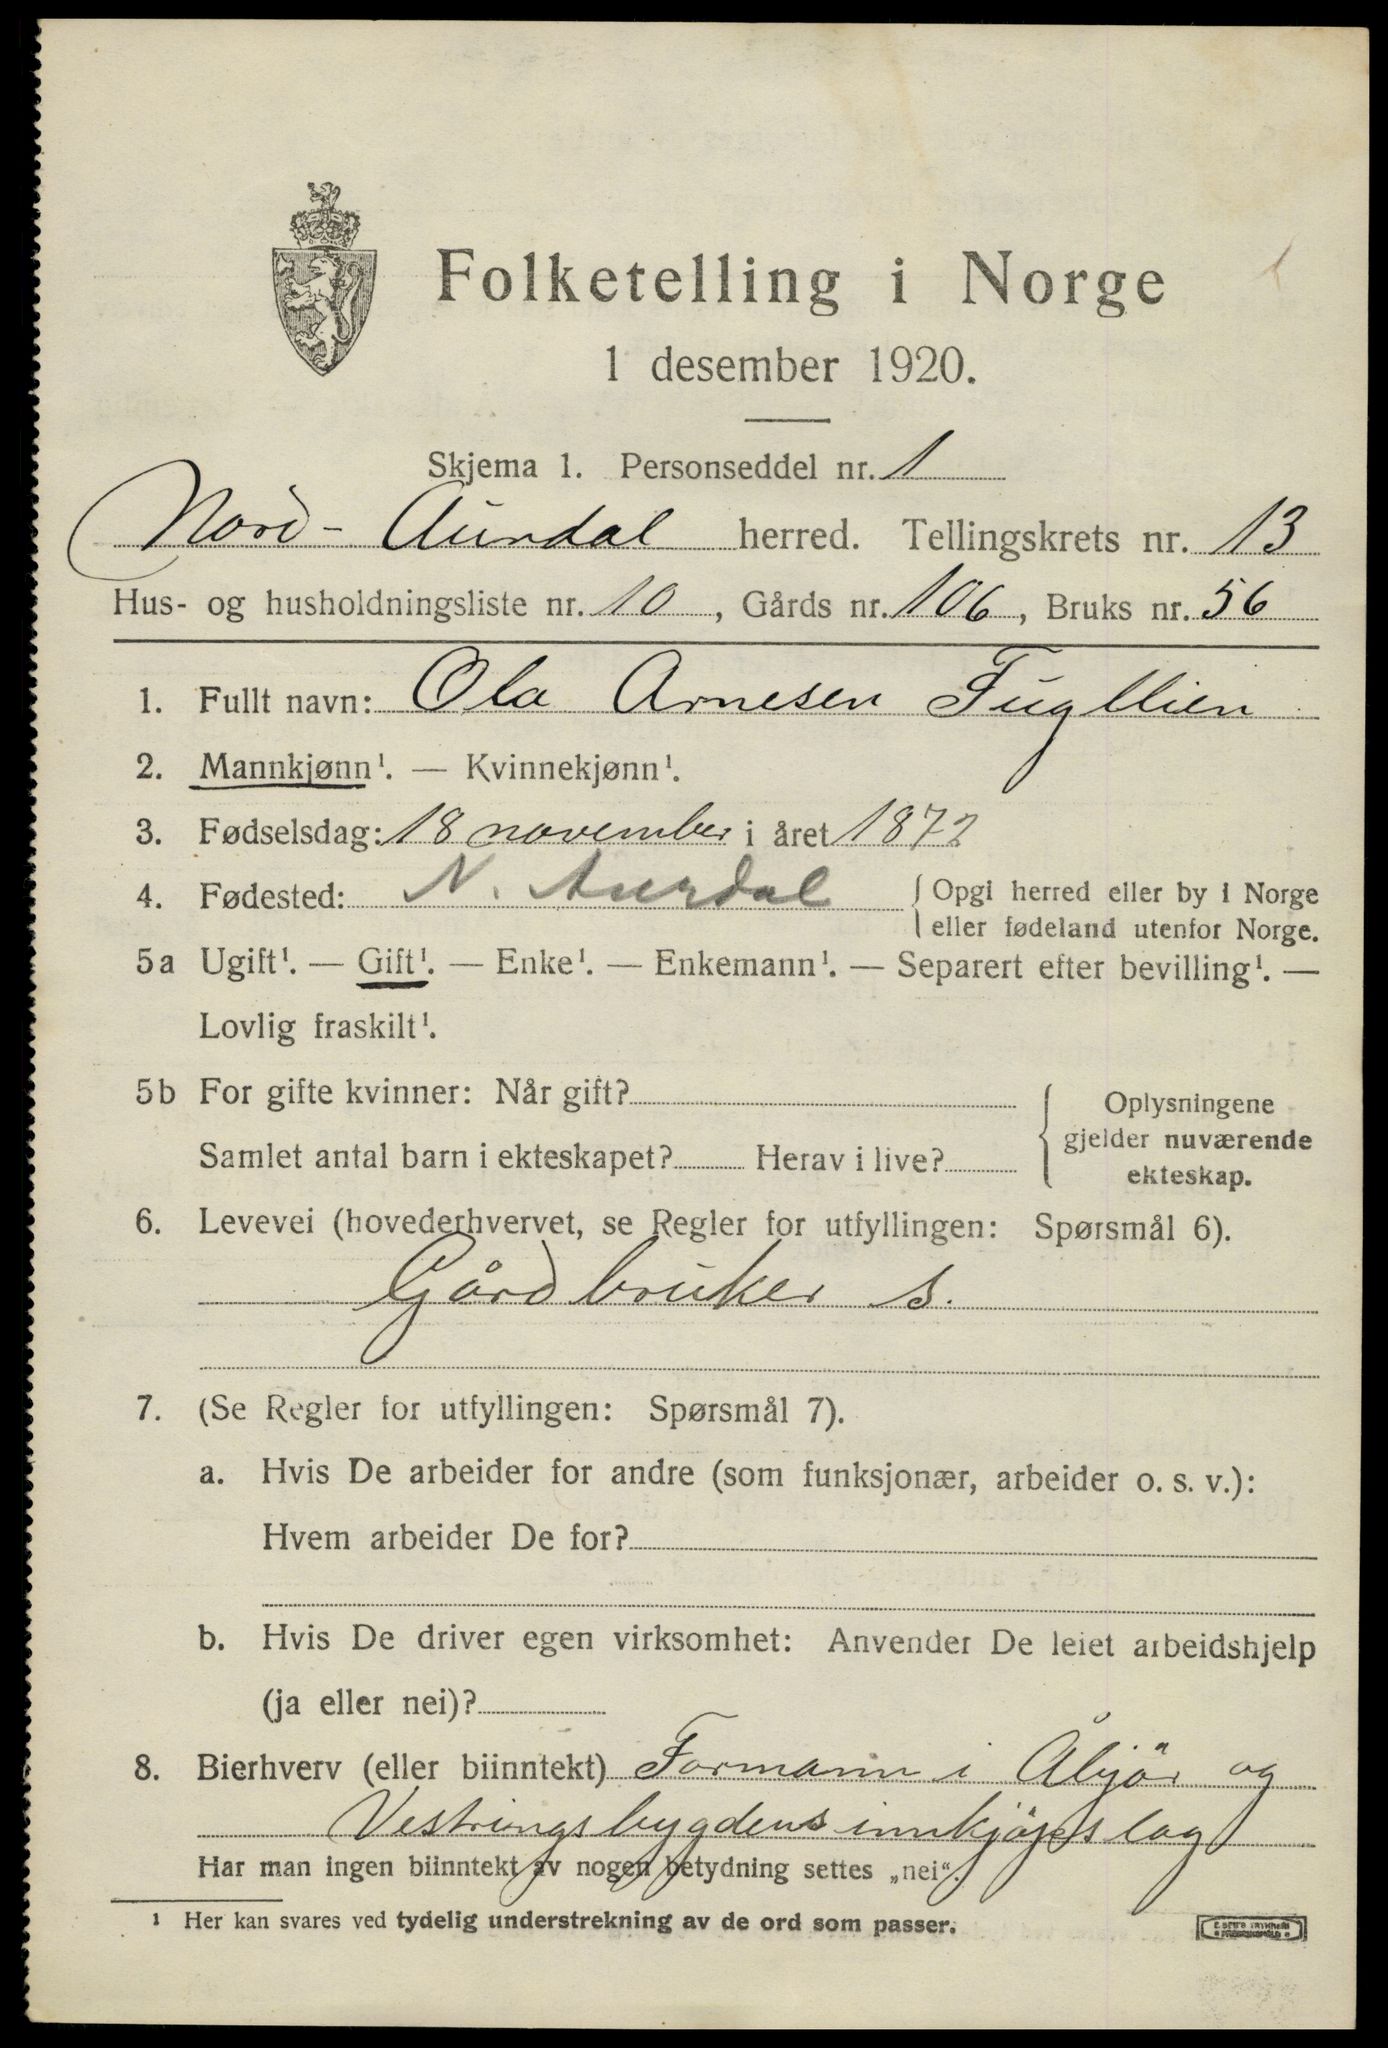 Folketelling i Norge
1 desember 1920.
Skjema 1. Personseddel nr. 1
Nord-Aurdal herred. Tellingskrets nr. 13
Hus- og husholdningsliste nr. 10, Gårds nr. 106, Bruks nr. 56
1. Fullt navn: Ola Arnesen Fugllien
2. Mannkjønn¹. — Kvinnekjønn¹.
3. Fødselsdag: 18 november i året 1872
4. Fødested: N. Aurdal { Opgi herred eller by i Norge
eller fødeland utenfor Norge.
5a Ugift¹. — Gift¹. — Enke¹. — Enkemann¹. — Separert efter bevilling¹. —
Lovlig fraskilt¹.
5b For gifte kvinner: Når gift?
Samlet antal barn i ekteskapet? Herav i live?
{ Oplysningene
gjelder nuværende
ekteskap.
6. Levevei (hovederhvervet, se Regler for utfyllingen: Spørsmål 6).
Gårdbruker s.
7. (Se Regler for utfyllingen: Spørsmål 7).
a. Hvis De arbeider for andre (som funksjonær, arbeider o. s. v.):
Hvem arbeider De for?
b. Hvis De driver egen virksomhet: Anvender De leiet arbeidshjelp
(ja eller nei)?
8. Bierhverv (eller biinntekt) Formann i Åbjör og
Vestringsbygdens innkjöpslag
Har man ingen biinntekt av nogen betydning settes „nei“.
¹ Her kan svares ved tydelig understrekning av de ord som passer.